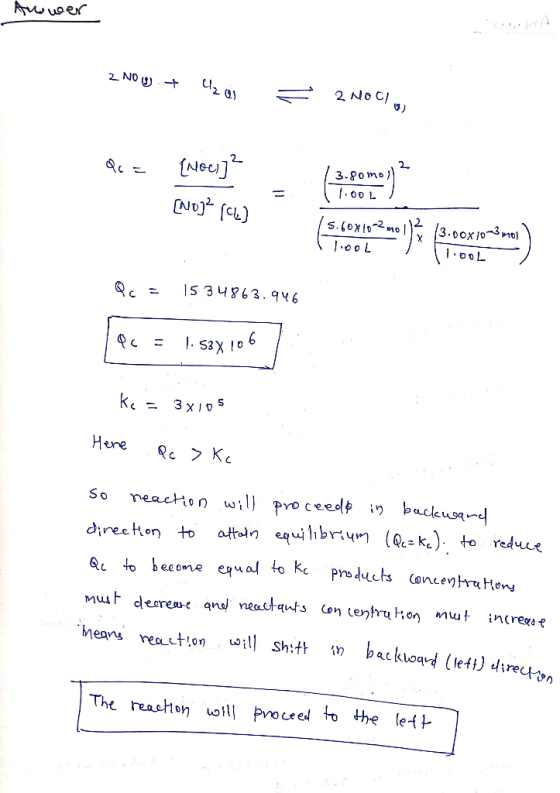 Answer
2 NO(g) + Cl2(g) ⇌ 2 NOCl(g)
Qc = [NOCl]^2 / [NO]^2 [Cl2] = (3.80 mol / 1.00 L)^2 / (5.60X10^-2 mol / 1.00 L)^2 x (3.00X10^-3 mol / 1.00 L)
Qc = 1534863.946
Qc = 1.53X10^6
Kc = 3X10^5
Here Qc > Kc
so reaction will proceeds in backward
direction to attain equilibrium (Qc=Kc). to reduce
Qc to become equal to Kc products concentrations
must decrease and reactants concentration must increase
means reaction will shift in backward (left) direction
The reaction will proceed to the left